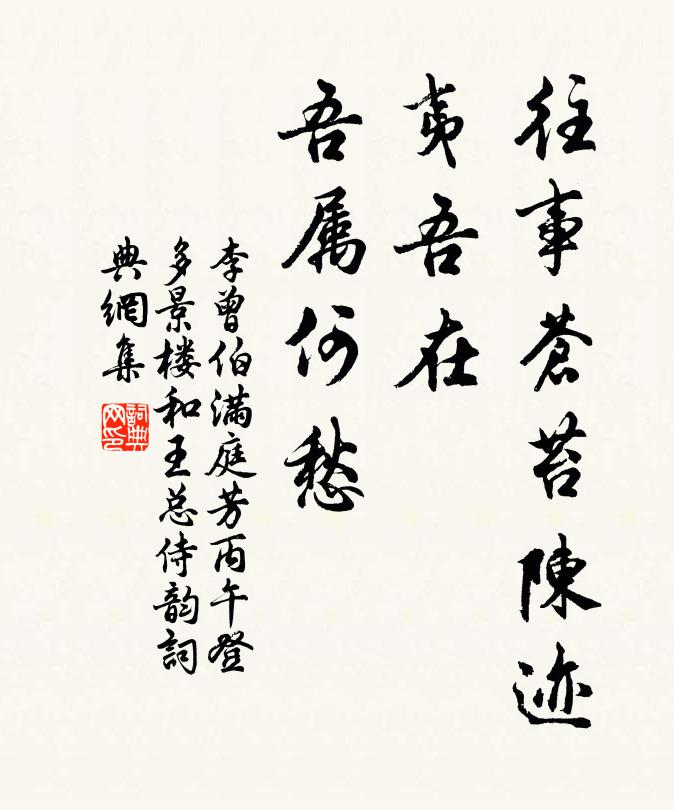 往事蒼苔陳迹
夷吾在
吾属何愁
李曾伯满庭芳丙午登
多景楼和王总侍韵詞
典網集
詞典
网印